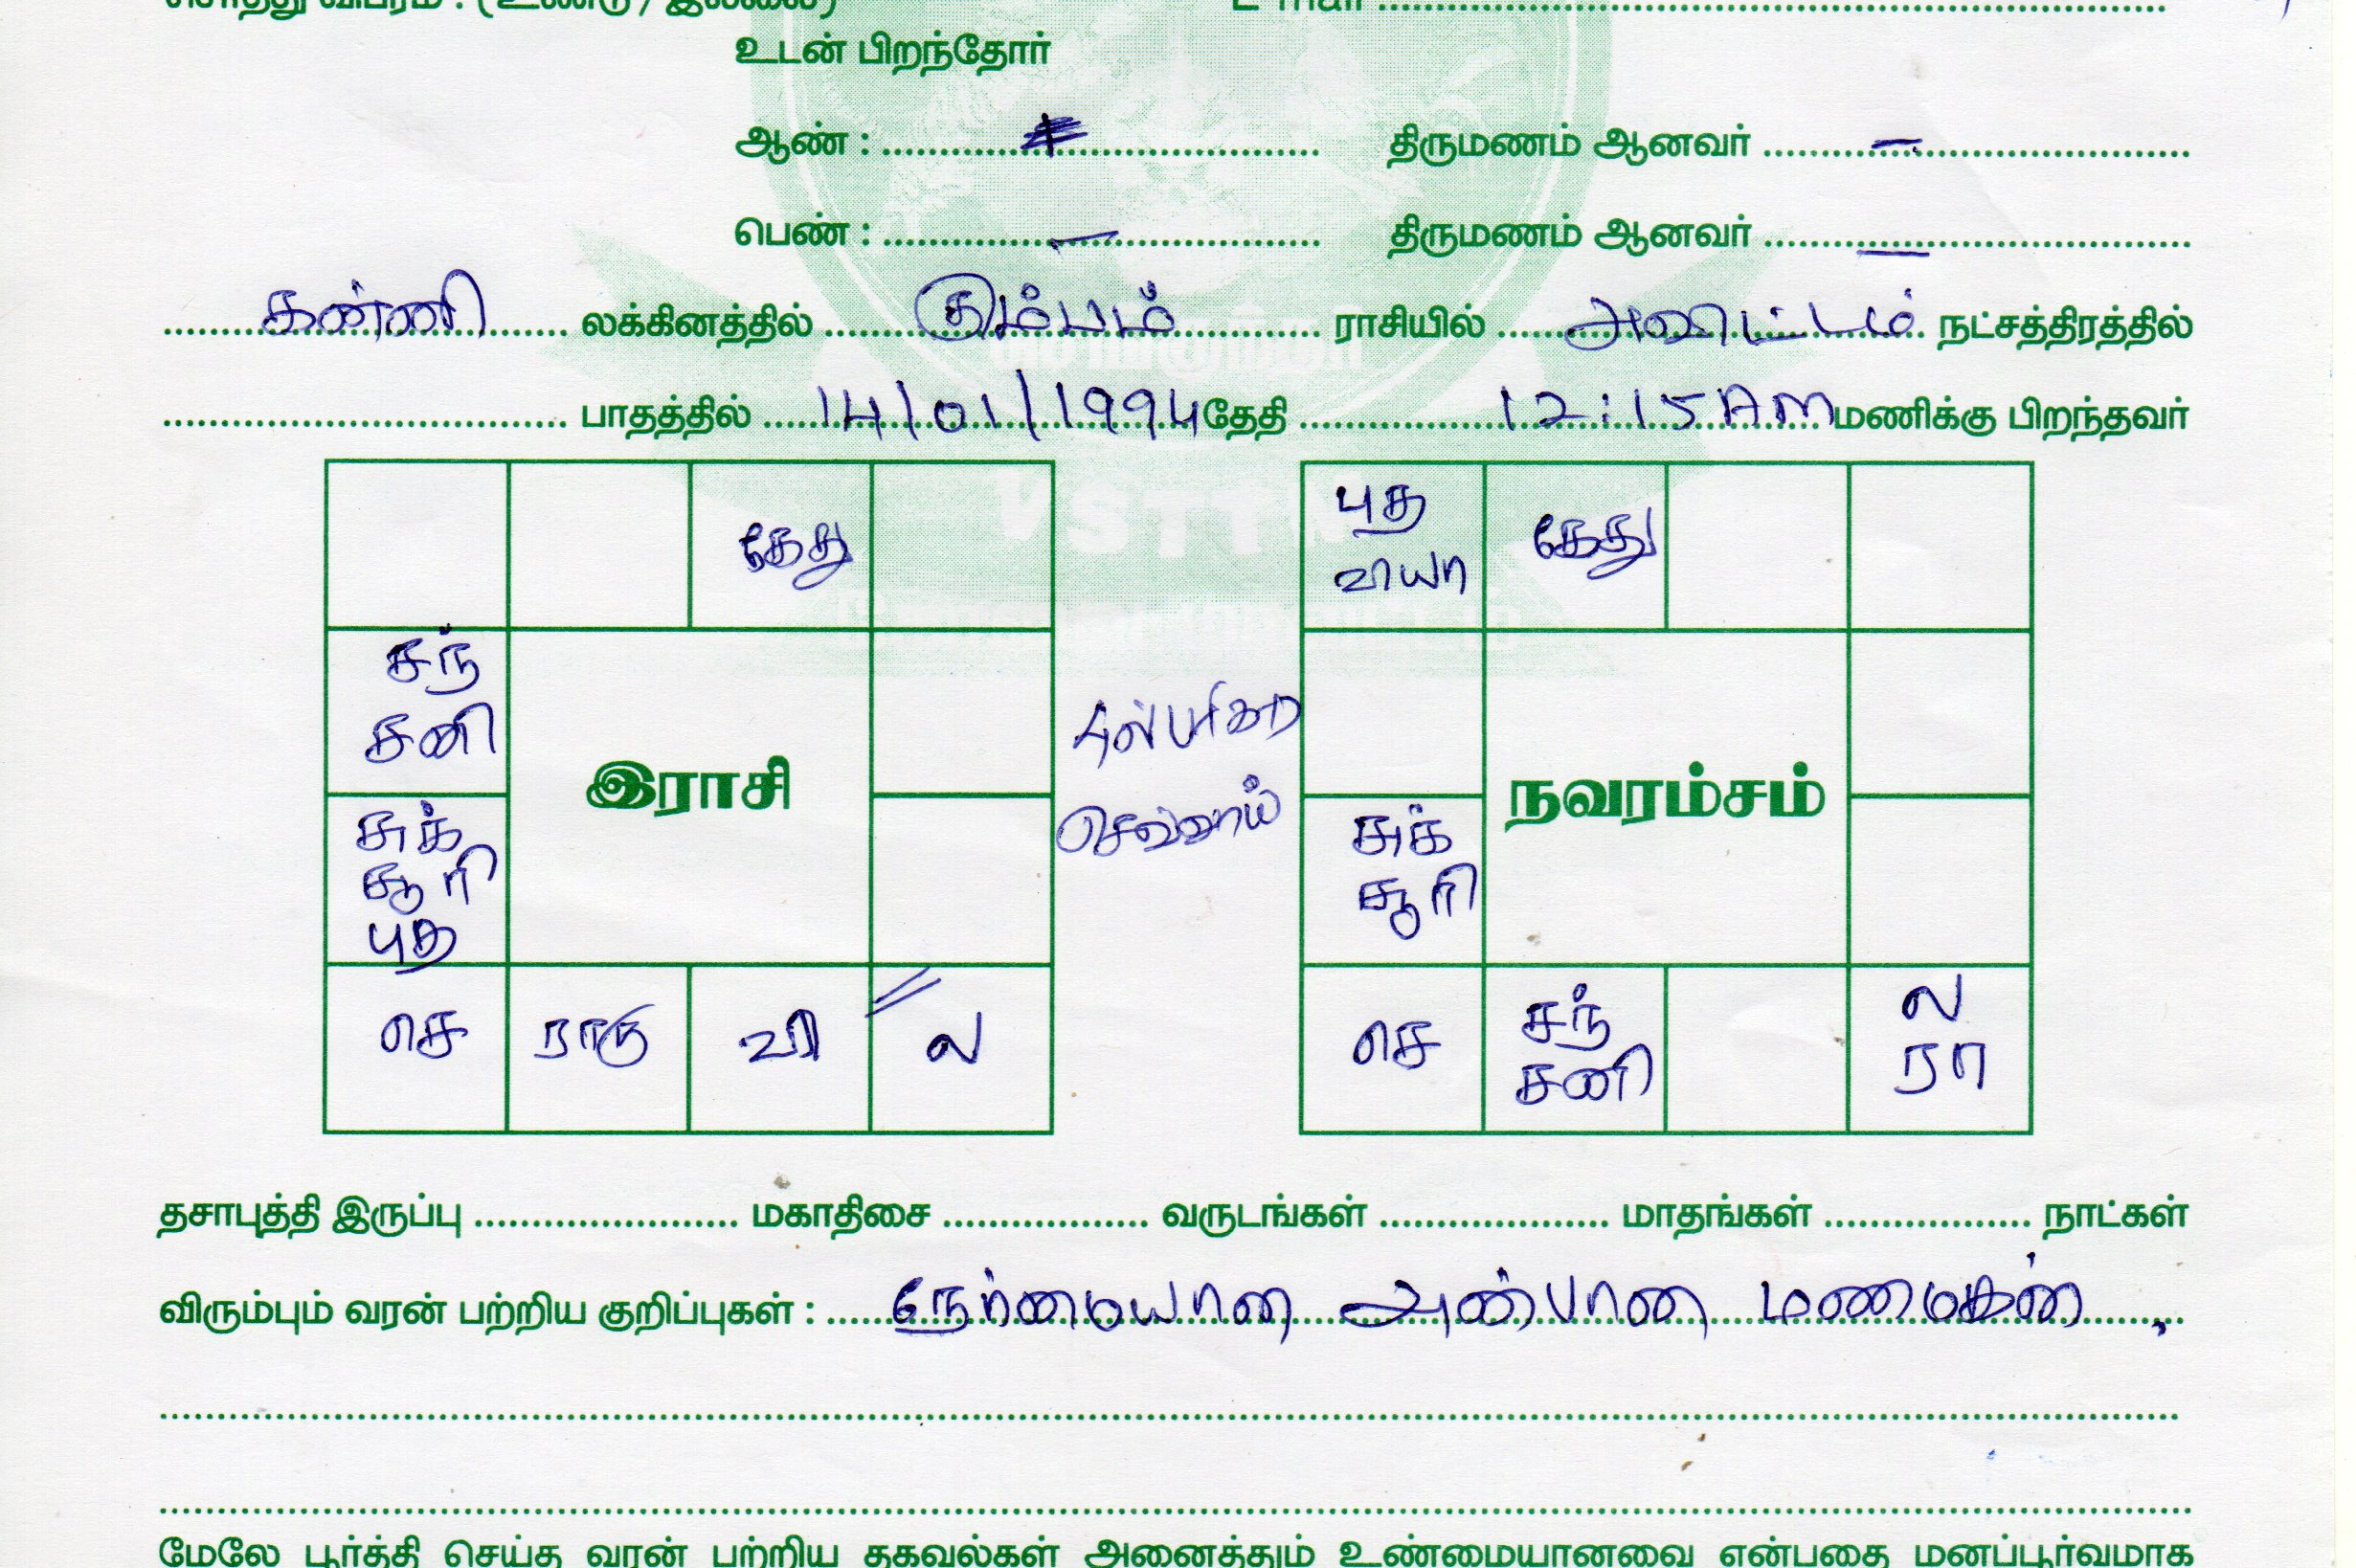 சொத்து விபரம் : (உண்டு / இல்லை) E-mail
உடன் பிறந்தோர்
ஆண் : திருமணம் ஆனவர் –
பெண் : – திருமணம் ஆனவர் –
கன்னி லக்கினத்தில் கும்பம் ராசியில் அவிட்டம் நட்சத்திரத்தில்
பாதத்தில் 14/01/1994 தேதி 12:15 AM மணிக்கு பிறந்தவர்
கேது
சந்
சனி
சுக்
சூரி
புத
செ ராகு வி ல
இராசி
செவ்வாய்
புத
வியா
கேது
சுக்
சூரி
நவரம்சம்
செ
சந்
சனி
ல
ரா
தசாபுத்தி இருப்பு மகாதிசை வருடங்கள் மாதங்கள் நாட்கள்
விரும்பும் வரன் பற்றிய குறிப்புகள் : நேர்மையான அன்பான மணமகன்,
மேலே பூர்த்தி செய்த வரன் பற்றிய தகவல்கள் அனைத்தும் உண்மையானவை என்பதை மனப்பூர்வமாக